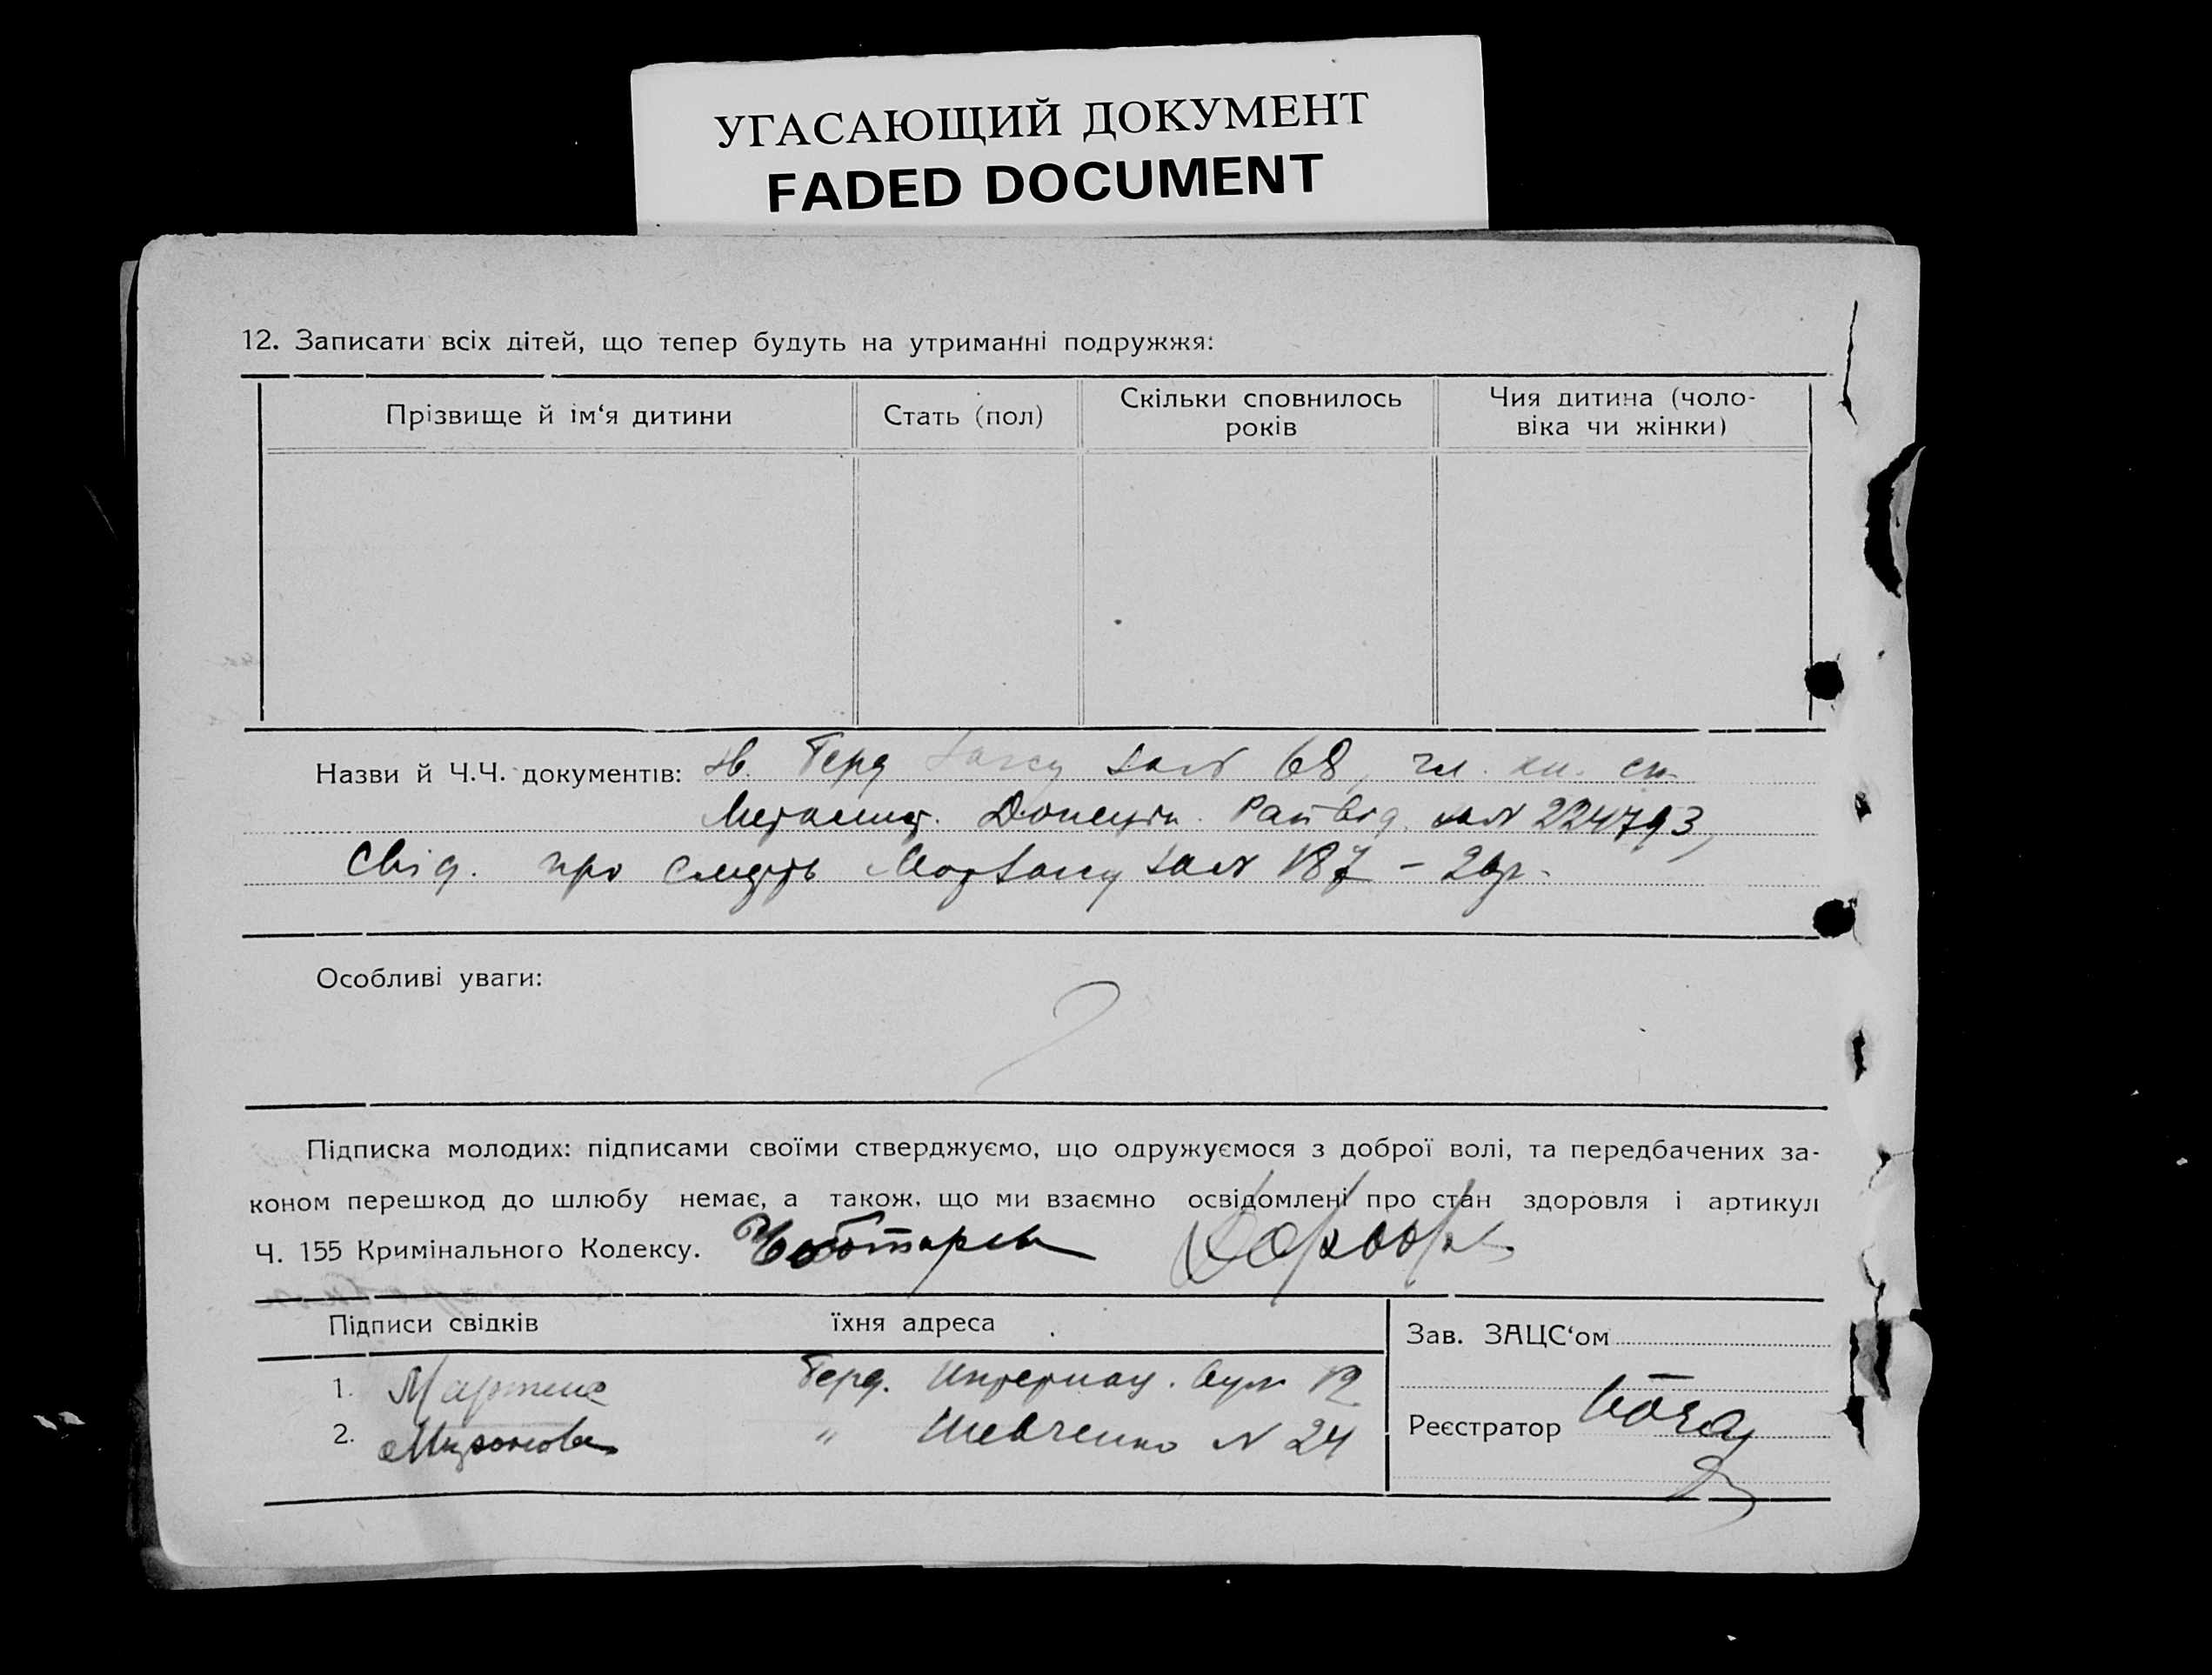 УГАСАЮЩИЙ ДОКУМЕНТ
FADED DOCUMENT
12. Записати всіх дітей, що тепер будуть на утриманні подружжя:
Прізвище й ім‘я дитини
Стать (пол)
Скільки сповнилось
років
Чия дитина (чоло-
віка чи жінки)
Назви й Ч.Ч. документів: Берд за № 68, чл. кн. сп.
Металист. Донецьк. Райвід. за № 224793,
Свід. про смерть за № 187 –
Особливі уваги:
Підписка молодих: підписами своїми стверджуємо, що одружуємося з доброї волі, та передбачених за-
коном перешкод до шлюбу немає, а також, що ми взаємно освідомлені про стан здоровля і артикул
Ч. 155 Кримінального Кодексу. Чоботарев
Підписи свідків
їхня адреса
Зав. ЗАЦС‘ом
1. Берд. Интернац. вул. 12
2. " Шевченко № 24
Реєстратор